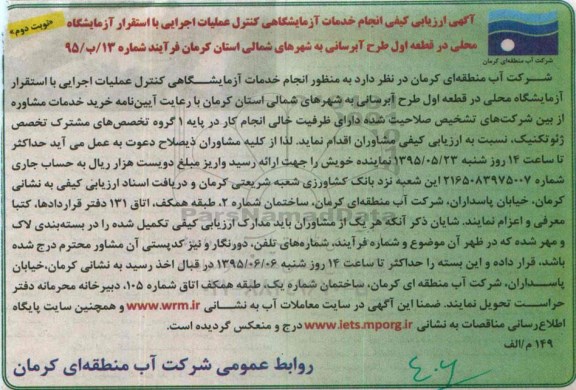 آگهی ارزیابی کیفی انجام خدمات آزمایشگاهی کنترل عملیات اجرایی با استقرار آزمایشگاه
«نوبت دوم»
محلی در قطعه اول طرح آبرسانی به شهرهای شمالی استان کرمان فرآیند شماره ۱۳/ب/۹۵
شرکت آب منطقه‌ای کرمان
شرکت آب منطقه‌ای کرمان در نظر دارد به منظور انجام خدمات آزمایشگاهی کنترل عملیات اجرایی با استقرار
آزمایشگاه محلی در قطعه اول طرح آبرسانی به شهرهای شمالی استان کرمان با رعایت آیین‌نامه خرید خدمات مشاوره
از بین شرکت‌های تشخیص صلاحیت شده دارای ظرفیت خالی انجام کار در پایه ۱ گروه تخصص‌های مشترک تخصص
ژئوتکنیک، نسبت به ارزیابی کیفی مشاوران اقدام نماید. لذا از کلیه مشاوران ذیصلاح دعوت به عمل می آید حداکثر
تا ساعت ۱۴ روز شنبه ۱۳۹۵/۰۵/۲۳ نماینده خویش را جهت ارائه رسید واریز مبلغ دویست هزار ریال به حساب جاری
شماره ۲۱۶۵۰۸۳۹۷۵۰۰۷ این شعبه نزد بانک کشاورزی شعبه شریعتی کرمان و دریافت اسناد ارزیابی کیفی به نشانی
کرمان، خیابان پاسداران، شرکت آب منطقه‌ای کرمان، ساختمان شماره ۲، طبقه همکف، اتاق ۱۳۱ دفتر قراردادها، کتبا
معرفی و اعزام نمایند. شایان ذکر آنکه هر یک از مشاوران باید مدارک ارزیابی کیفی تکمیل شده را در بسته‌بندی لاک
و مهر شده که در ظهر آن موضوع و شماره فرآیند، شماره‌های تلفن، دورنگار و نیز کدپستی آن مشاور محترم درج شده
باشد، قرار داده و این بسته را حداکثر تا ساعت ۱۴ روز شنبه ۱۳۹۵/۰۶/۰۶ در قبال اخذ رسید به نشانی کرمان،خیابان
پاسداران، شرکت آب منطقه ای کرمان، ساختمان شماره یک، طبقه همکف اتاق شماره ۱۰۵، دبیرخانه محرمانه دفتر
حراست تحویل نمایند. ضمنا این آگهی در سایت معاملات آب به نشانی www.wrm.ir و همچنین سایت پایگاه
اطلاع‌رسانی مناقصات به نشانی www.iets.mporg.ir درج و منعکس گردیده است.
۱۴۹ م/الف
روابط عمومی شرکت آب منطقه‌ای کرمان
ParsNamadData